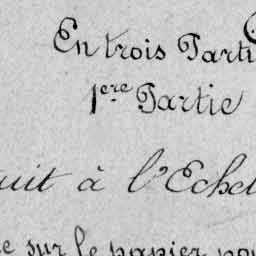 En trois Parti
1ère Partie
uit à l'Echel
sur le papier